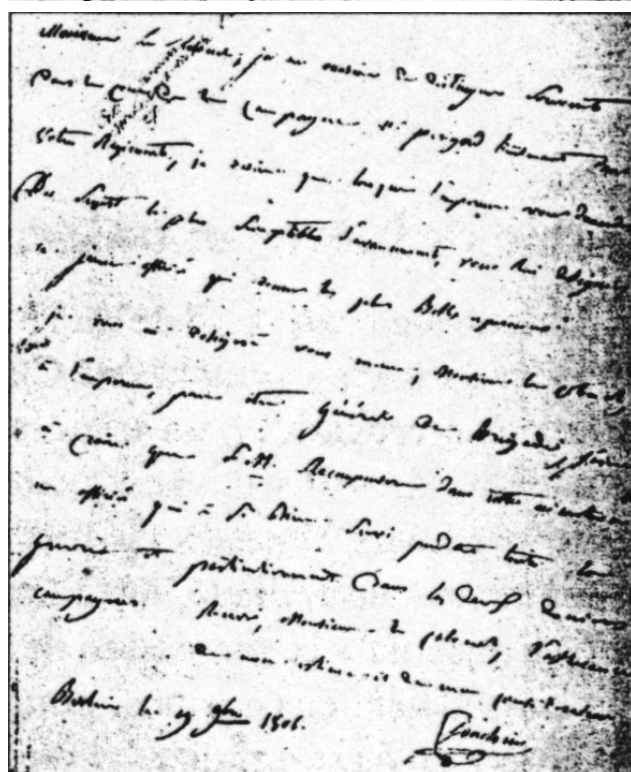 Monsieur le Colonel, je me souviens de distinguer souvent
dans le cours de la Campagne Mr perigord lieutenant dans
votre Regiment, je desire que lorsque l'empereur vous demandera
Des Sujets le plus Susceptibles d'avancement, vous lui designiez
ce jeune officier qui donne les plus Belles esperances.
je vous ai designé vous meme, Monsieur le Colonel,
à l'empereur, pour etre Général de Brigade,
à croire que S.M. Recompensera Dans cette
un officier qui a si bien Servi pendant toute la
guerre et particulierement Dans les deux dernieres
campagnes. Recevez, Monsieur le Colonel, l'assurance
de mon estime et de mon
Berlin le 19 9bre 1806. Joachim